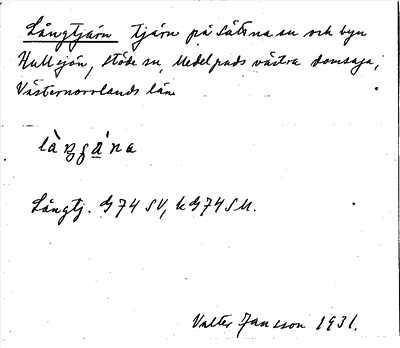 Långtjärn tjärn på Sättna sn och byn
Hullsjön, Stöde sn, Medelpads västra domsaga,
Västernorrlands län.
Långtj. G 74 SV, k G 74 SU.
Valter Jansson 1931.